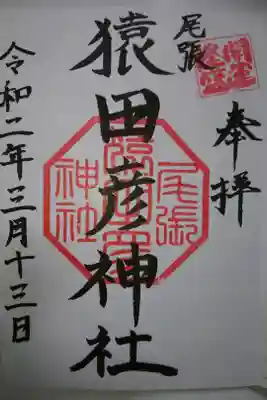 奉拝
尾張
猿田彦神社
令和二年三月十三日
尾張
神社